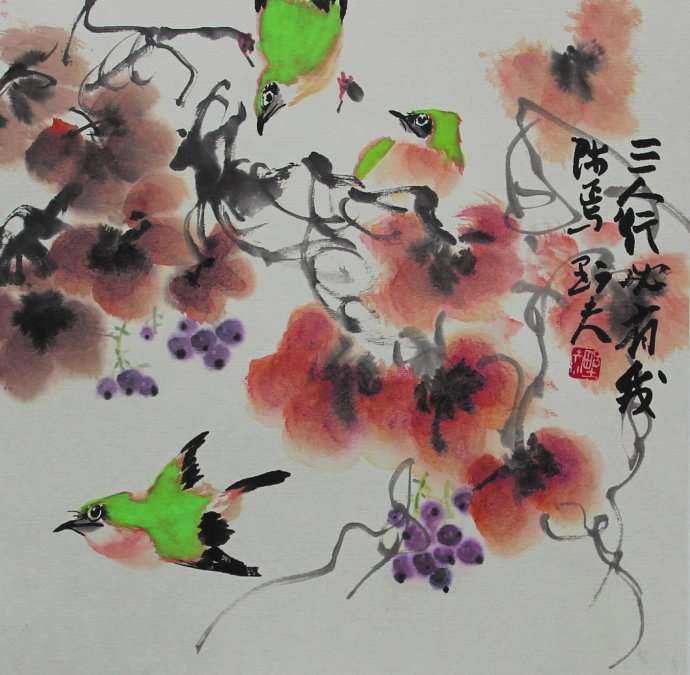 三人行必有我
师焉 野夫